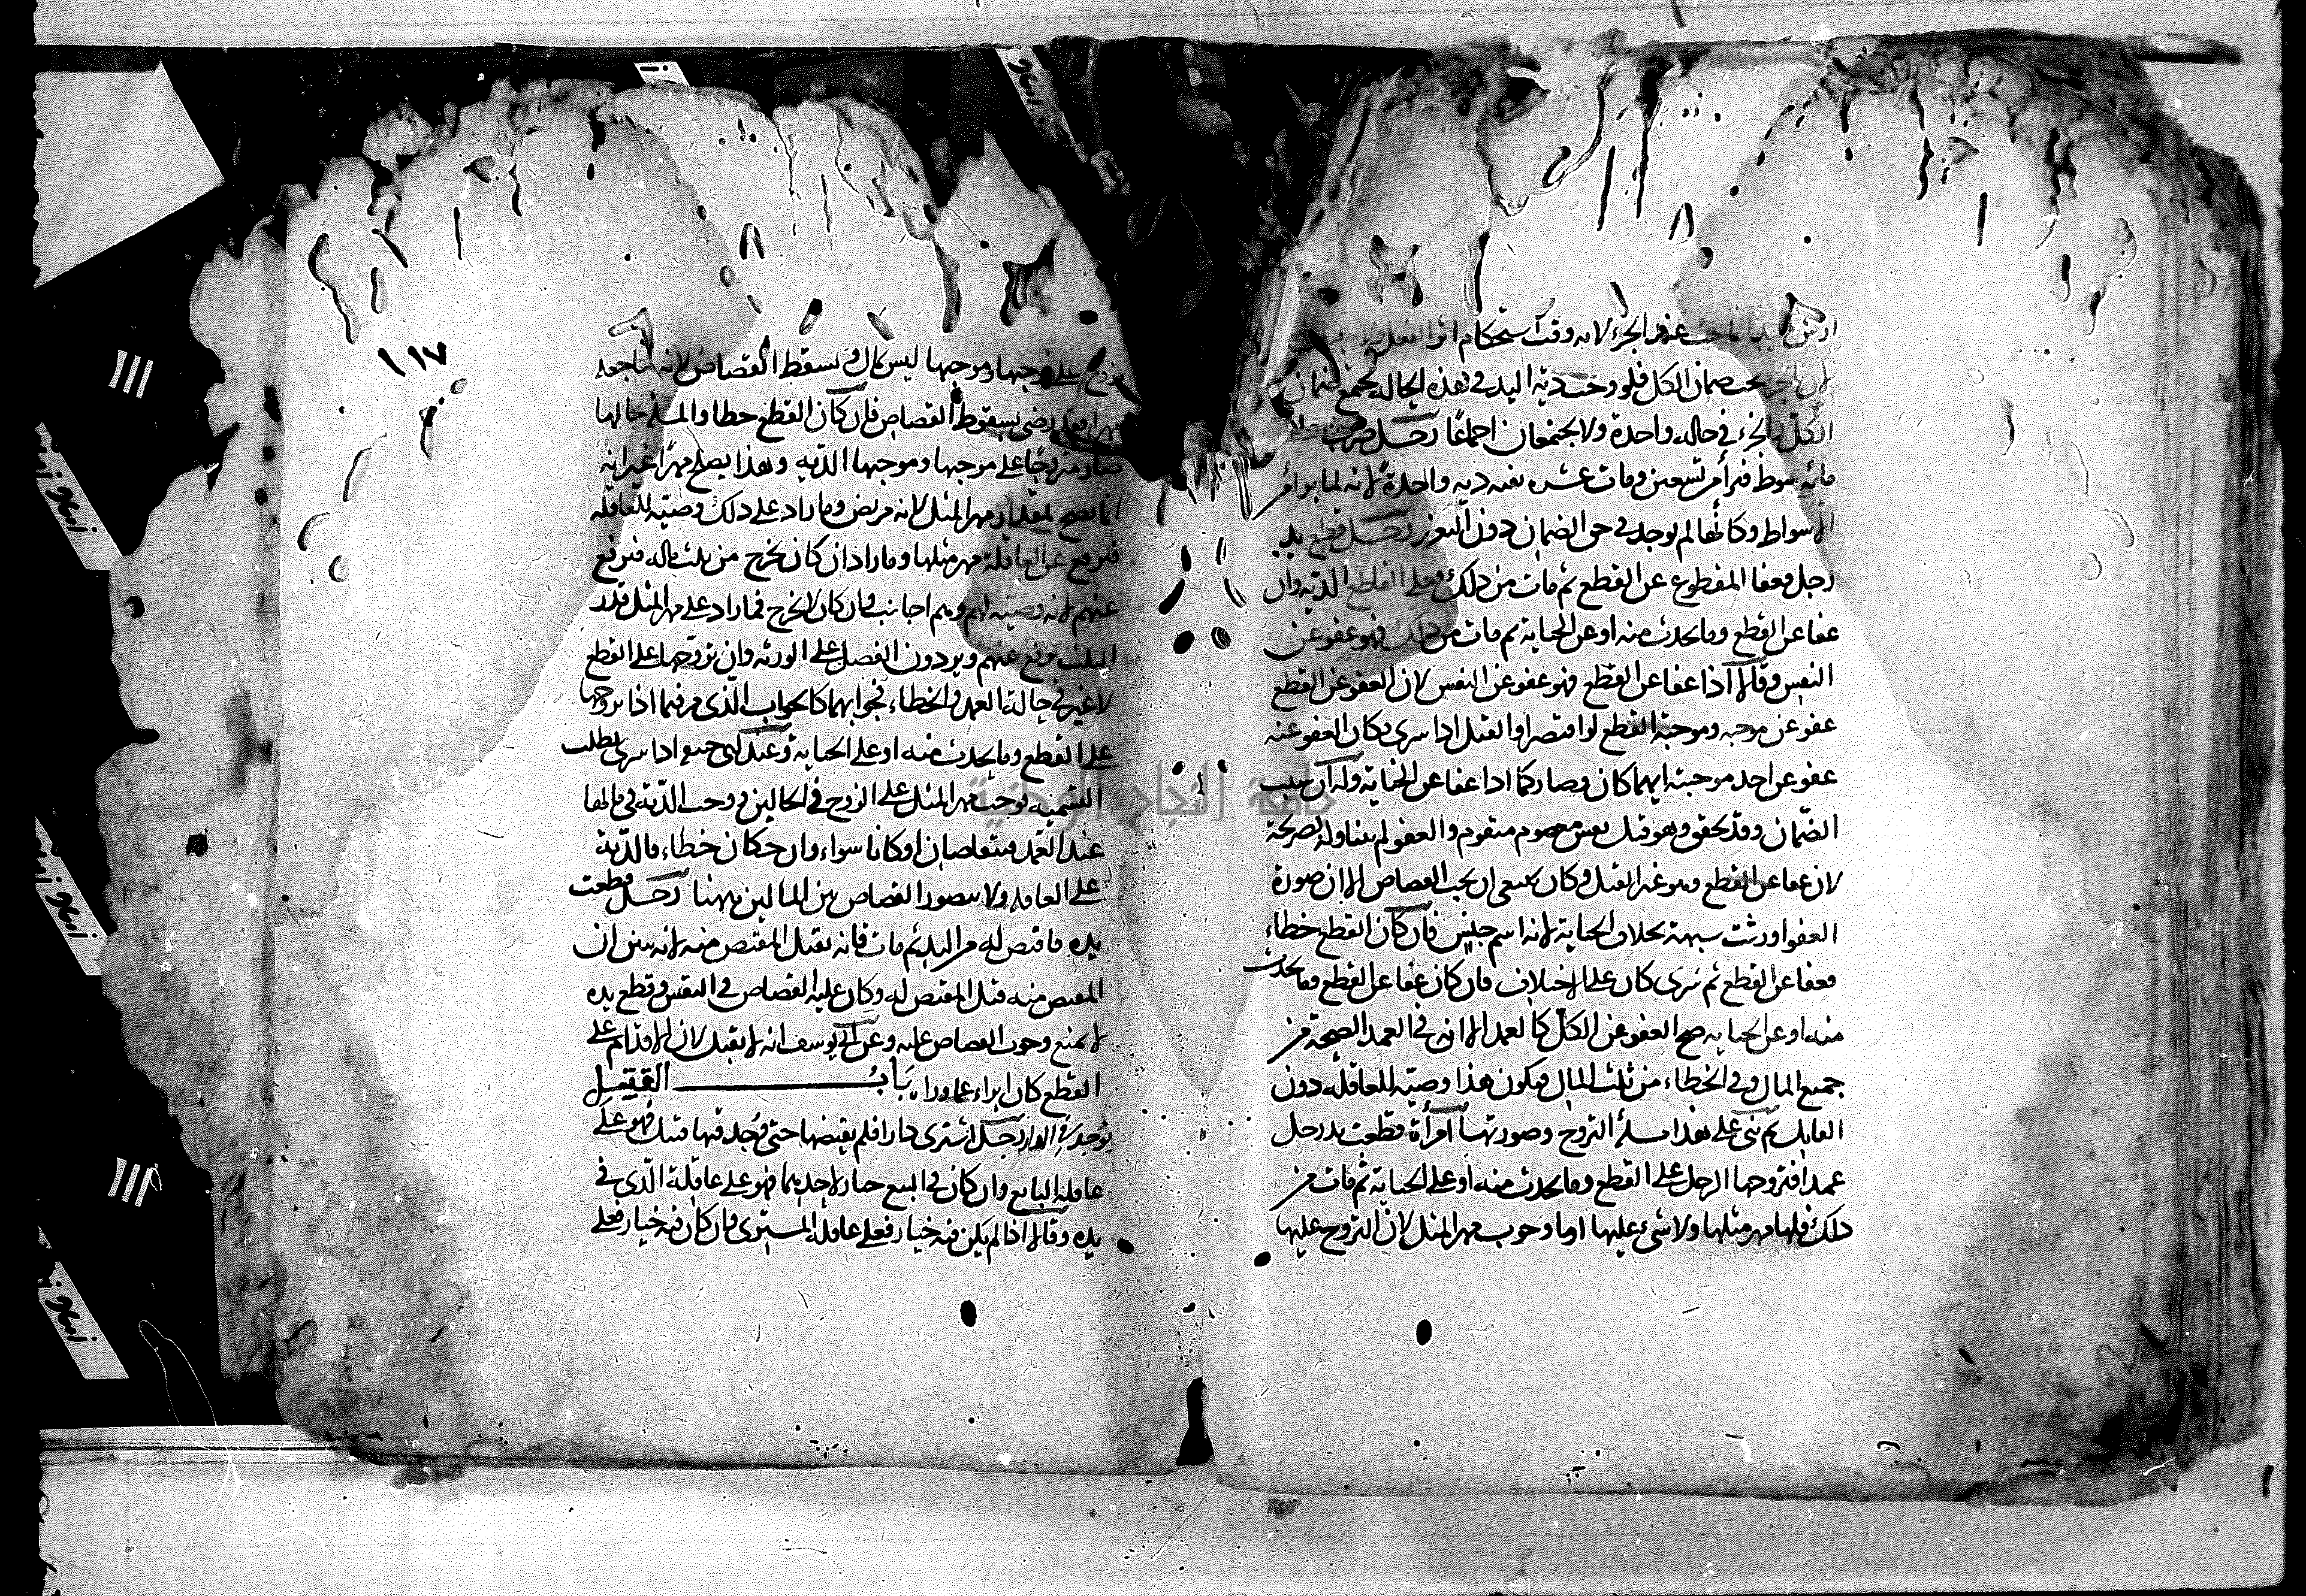 عند الجزء لانه وقت استحكام اثر الفعل
يجب ضمان الكل فلو وجب دية اليد في هذه الحالة يجتمع ضمان
الكل والجزء في حالة واحدة ولا يجتمعان اجماعا رجل ضرب
مائة سوط فبرأ من تسعين ومات من عشرة ففيه دية واحدة لانه لما برأ من
الاسواط وكانها لم توجد في حق الضمان دون التعزير رجل قطع يد
رجل فعفا المقطوع عن القطع ثم مات من ذلك فعلى القاطع الدية وان
عفا عن القطع وما يحدث منه او عن الجناية ثم مات من ذلك فهو عفو عن
النفس وقالا اذا عفا عن القطع فهو عفو عن النفس لان العفو عن القطع
عفو عن موجبه وموجبة القطع لو اقتصر او القتل اذا سرى وكان العفو عنه
عفو عن احد موجبته ايهما كان وصار كما اذا عفا عن الجناية وله ان سبب
الضمان وقد تحقق وهو قتل نفس معصوم متقوم والعفو لم يتناوله بصريحة
لان عفا عن القطع وهو غير القتل وكان ينبغي ان يجب القصاص الا ان صورة
العفو اورثت شبهة بخلاف الجناية لانه اسم جنس فان كان القطع خطاء
فعفا عن القطع ثم سرى كان على الاختلاف فان كان عفا عن القطع وما يحدث
منه او عن الجناية صح العفو عن الكل كالعمد الا انه في العمد الصحة من
جميع المال وفي الخطاء من ثلث المال ويكون هذا وصية للعاقلة دون
القاتل ثم بنى على هذا مسلة التزوج وصورتها امرأة قطعت يد رجل
عمدا فتزوجها الرجل على القطع وما يحدث منه او على الجناية ثم مات من
ذلك فلها مهر مثلها ولا شيء عليها اما وجوب مهر المثل لان التزوج عليها
١١٧
تزوج على موجبها وموجبها ليس بمال ويسقط القصاص لانه لما جعله
مهرا فقد رضي بسقوط القصاص فان كان القطع خطا والمسلة بحالها
صار متزوجا على موجبها وموجبها الدية وهذا يصلح مهرا غير انه
انما يصح بمقدار مهر المثل لانه مريض وما زاد على ذلك وصية للعاقلة
فيرفع عن العاقلة مهر مثلها وما زاد ان كان يخرج من ثلث ماله فيرفع
عنهم لانه وصية لهم وهم اجانب وان كان لا يخرج فما زاد على مهر المثل قدر
الثلث يرفع عنهم ويردون الفضل على الورثة وان تزوجها على القطع
لا غير في حالة العمد والخطاء فجوابهما كالجواب الذي مر فيما اذا تزوجها
على القطع وما يحدث منه او على الجناية وعند ابي حنيفة اذا سرى بطلت
التسمية يوجب مهر المثل على الزوج في الحالين ووجب الدية في مالها
عند العمد فيتقاصان او كانا سواء وان كان خطاء فالدية
على العاقلة ولا يتصور القصاص بين المالين ههنا رجل قطعت
يده فاقتص له من اليد ثم مات فانه يقتل المقتص منه لانه تبين ان
المقتص منه قتل المقتص له وكان عليه القصاص في النفس وقطع يده
لا يمنع وجوب القصاص عليه وعن ابي يوسف انه لا يقتل لان الاقدام على
القطع كان ابراء عما وراه باب القتيل
يوجد في الدار رجل اشترى دارا فلم يقبضها حتى وجد فيها قتيل فهو على
عاقلة البايع وان كان في البيع خيار لاحدهما فهو على عاقلة الذي في
يده وقالا اذا لم يكن فيه خيار فعلى عاقلة المشتري وان كان فيه خيار فعلى
جامعة النجاح الوطنية